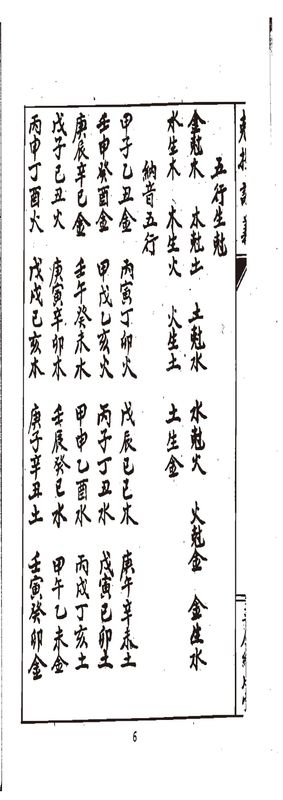 五行生尅
金尅木 木尅土 土尅水 水尅火 火尅金 金生水
水生木 木生火 火生土 土生金
納音五行
甲子乙丑金 丙寅丁卯火 戊辰己巳木 庚午辛未土
壬申癸酉金 甲戌乙亥火 丙子丁丑水 戊寅己卯土
庚辰辛巳金 壬午癸未木 甲申乙酉水 丙戌丁亥土
戊子己丑火 庚寅辛卯木 壬辰癸巳水 甲午乙未金
丙申丁酉火 戊戌己亥木 庚子辛丑土 壬寅癸卯金
6